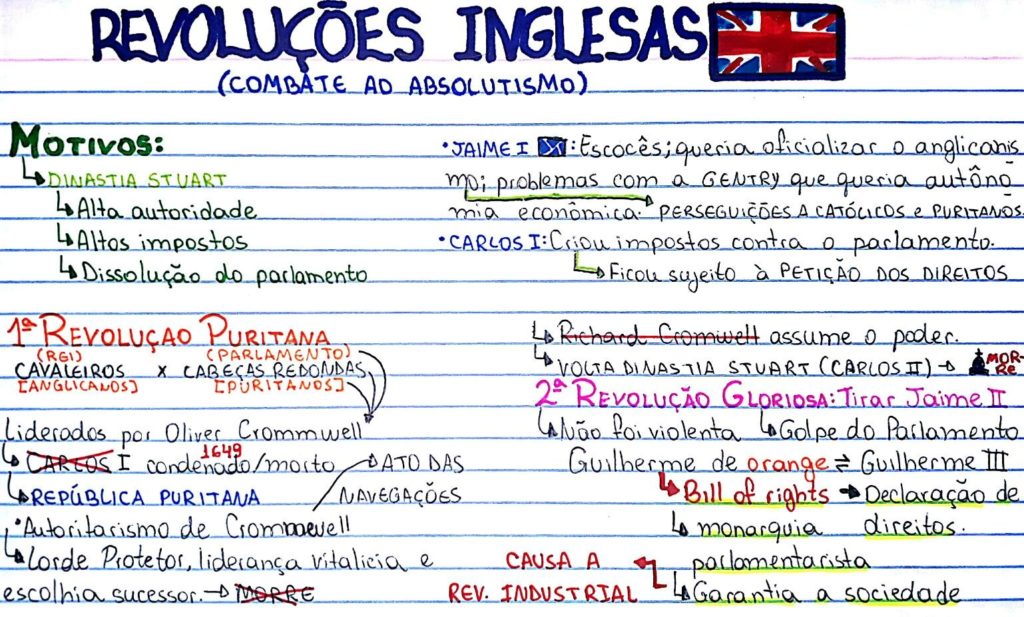 REVOLUÇÕES INGLESAS
(COMBATE AO ABSOLUTISMO)
MOTIVOS:
DINASTIA STUART
Alta autoridade
Altos impostos
Dissolução do parlamento
• JAIME I : Escocês; queria oficializar o anglicanis
mo; problemas com a GENTRY que queria autôno
mia econômica. PERSEGUIÇÕES A CATÓLICOS e PURITANOS.
• CARLOS I: Criou impostos contra o parlamento.
Ficou sujeito à PETIÇÃO DOS DIREITOS
1ª REVOLUÇAO PURITANA
(REI) (PARLAMENTO)
CAVALEIROS x CABEÇAS REDONDAS
[ANGLICANOS] [PURITANOS]
Liderados por Oliver Crommwell
1649
CARLOS I condenado/morto
ATO DAS
NAVEGAÇÕES
REPÚBLICA PURITANA
• Autoritarismo de Crommewell
Lorde Protetor, liderança vitalicia e
escolhia sucessor. → MORRE
Richard Cromwell assume o poder.
VOLTA DINASTIA STUART (CARLOS II) → MOR-
RE
2ª REVOLUÇÃO GLORIOSA: Tirar Jaime II
Não foi violenta Golpe do Parlamento
Guilherme de orange ⇌ Guilherme III
Bill of rights → Declaração de
direitos.
monarquia
parlamentarista
Garantia a sociedade
CAUSA A
REV. INDUSTRIAL